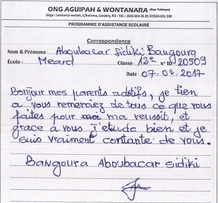 ONG AGUIPAH & WONTANARA
PROGRAMME D'ASSISTANCE SCOLAIRE
Correspondance
Nom & Prénoms Aboubacar Sidiki Bangoura
École Meard Classe 12e N° ID 20509
Date 07.02.2017
Bonjour mes parents adotifs, je tien
a vous remerciez de tous ce que vous
faites pour ma reussit, et
grâce a vous j'étude bien et je
suis vraiment contante de vous.
Bangoura Aboubacar Sidiki